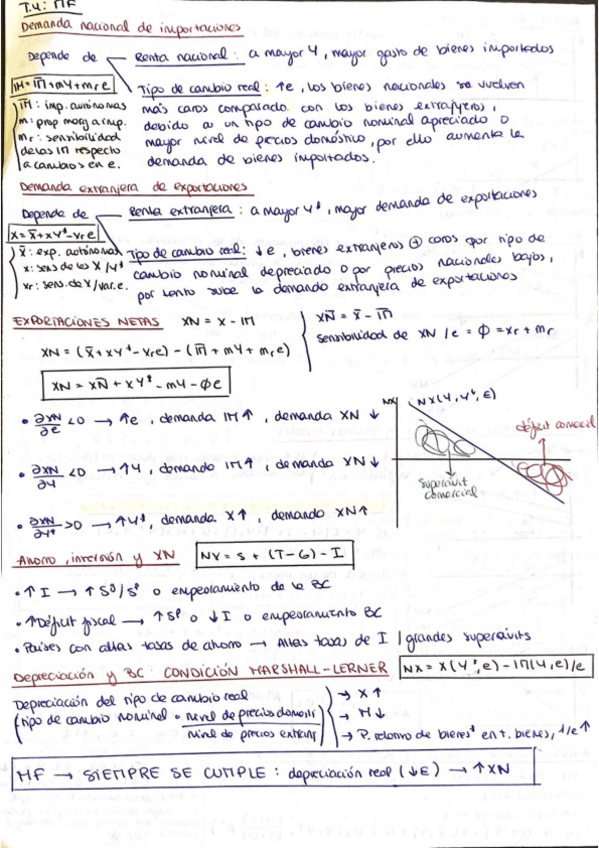 T.4: MF
Demanda nacional de importaciones
Depende de
Renta nacional: a mayor Y, mayor gasto de bienes importados
IM = IM̅ + mY + mr e
Tipo de cambio real: ↑e, los bienes nacionales se vuelven
más caros comparado con los bienes extranjeros,
debido a un tipo de cambio nominal apreciado o
mayor nivel de precios doméstico, por ello aumenta la
demanda de bienes importados.
IM̅: imp. autónomas
m: prop marg a imp.
mr: sensibilidad
de las IM respecto
a cambios en e.
Demanda extranjera de exportaciones
Depende de
Renta extranjera: a mayor Y*, mayor demanda de exportaciones
X = X̅ + xY* - xr e
Tipo de cambio real: ↓e, bienes extranjeros ⊕ caros por tipo de
cambio nominal depreciado o por precios nacionales bajos,
por tanto sube la demanda extranjera de exportaciones
X̅: exp. autónomas
x: sens de las X/Y*
xr: sens. de X/var. e.
EXPORTACIONES NETAS XN = X - IM
XN̅ = X̅ - IM̅
sensibilidad de XN/e = ϕ = xr + mr
XN = (X̅ + xY* - xr e) - (IM̅ + mY + mr e)
XN = XN̅ + xY* - mY - ϕe
NX
NX(Y, Y*, E)
déficit comercial
superávit
comercial
• ∂XN/∂e <0 → ↑e, demanda IM↑, demanda XN ↓
• ∂XN/∂Y <0 → ↑Y, demanda IM↑, demanda XN↓
• ∂XN/∂Y* >0 → ↑Y*, demanda X↑, demanda XN↑
Ahorro, inversión y XN NX = S + (T-G) - I
• ↑ I → ↑ Sº/Sᵖ o empeoramiento de la BC
• ↑Déficit fiscal → ↑Sᵖ o ↓I o empeoramiento BC
• Países con altas tasas de ahorro → Altas tasas de I / grandes superávits
Depreciación y BC: CONDICIÓN MARSHALL-LERNER
NX = X(Y*, e) - IM(Y, e)/e
Depreciación del tipo de cambio real
(tipo de cambio nominal · nivel de precios domésti / nivel de precios extranj)
→ X↑
→ M↓
→ P. retorno de bienes* en t. bienes, 1/e↑
MF → SIEMPRE SE CUMPLE: depreciación real (↓E) → ↑XN